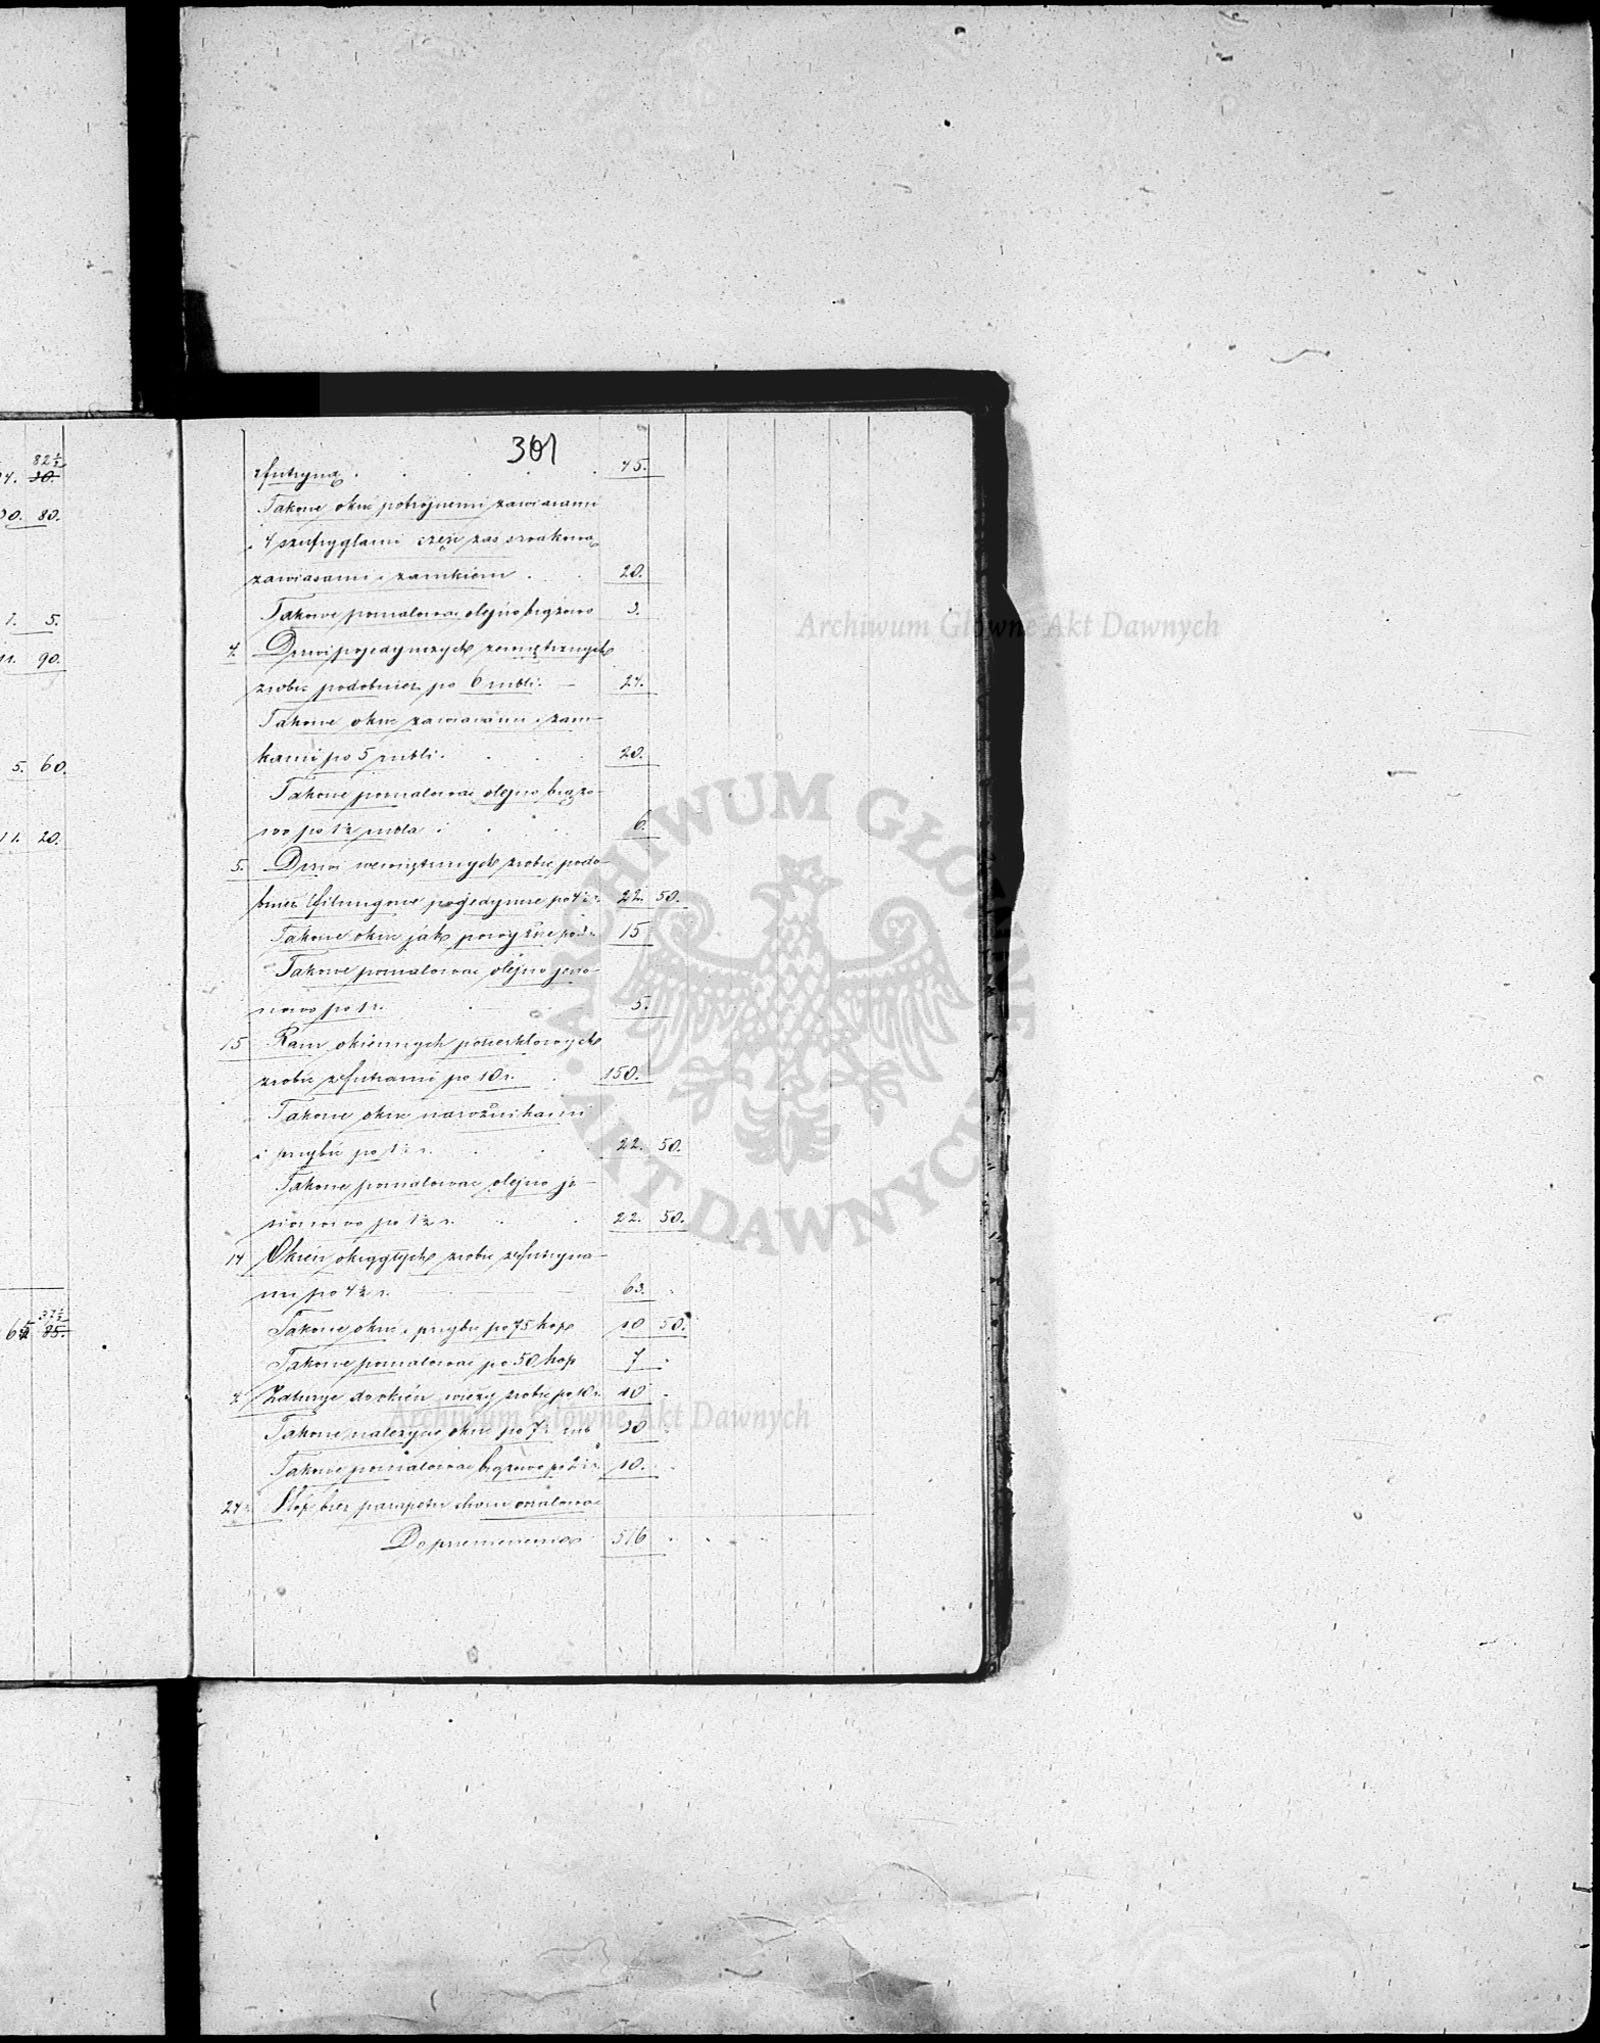 82½
30.
30. 80.
1. 5.
11. 90.
5. 60.
11. 20.
37½
65 85.
301
z futryną . . . . 45.
Takowe okuć potrójnemi zawiasami
i 4 szufryglami część zaś
zawiasami i zamkiem . . 20.
Takowe pomalować olejno brązowo 3.
4. Drzwi pojedynczych zewnętrznych
zrobić podobnież po 6 rubli. — 24.
Takowe okuć zawiasami i zam-
kami po 5 rubli. . . . 20.
Takowe pomalować olejno brązo-
wo po 1½ rubla . . . 6.
5. Drzwi wewnętrznych zrobić podo-
bnież filungowe pojedyncze po 4½ r. 22. 50.
Takowe okuć jak powyższe po 3 r. 15
Takowe pomalować olejno jesio-
nowo po 1 r. 5.
15 Ram okiennych poszesklowych
zrobić z futrami po 10 r. . 150.
Takowe okuć narożnikami
i przybić po 1½ r. . . . 22. 50.
Takowe pomalować olejno je-
sionowo po 1½ r. . . 22. 50.
14 Okien okrągłych zrobić z futryna-
mi po 4½ r. 63. "
Takowe okuć i przybić po 75 kop 10 50.
Takowe pomalować po 50 kop 7 "
4. Żaluzye do okien wieży zrobić po 10 r. 40
Takowe należycie okuć po 7½ rub 30
Takowe pomalować brązowo po 2½ r. 10.
24. Słup bez parapetu
Do przeniesienia 516 " " " "
Archiwum Główne Akt Dawnych
ARCHIWUM GŁÓWNE • AKT DAWNYCH •
Archiwum Główne Akt Dawnych